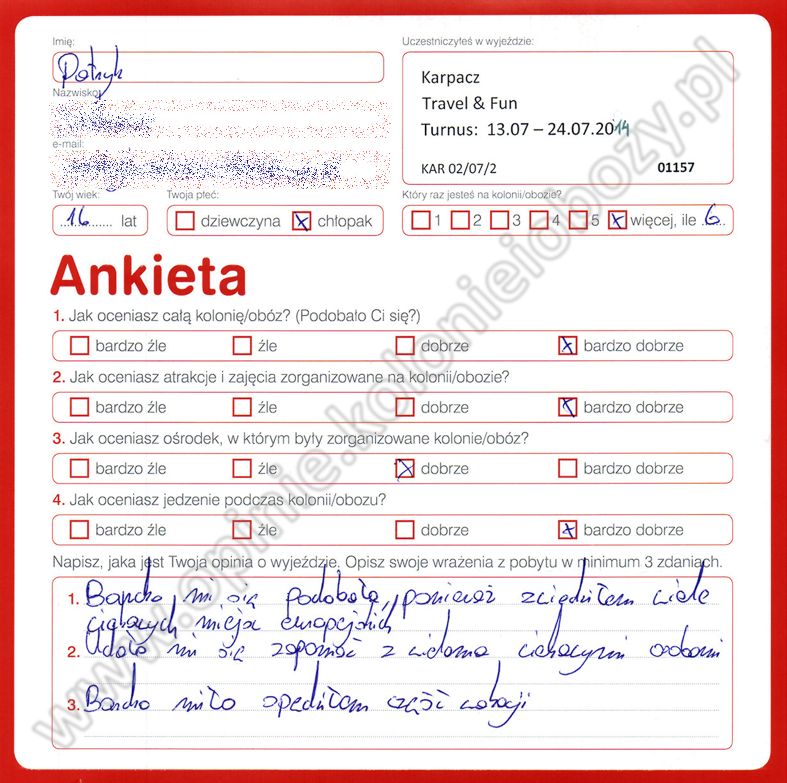 Imię:
Patryk
Nazwisko:
e-mail:
Twój wiek:
16 lat
Twoja płeć:
dziewczyna chłopak
Uczestniczyłeś w wyjeździe:
Karpacz
Travel & Fun
Turnus: 13.07 – 24.07.2014
KAR 02/07/2 01157
Który raz jesteś na kolonii/obozie?
1 2 3 4 5 więcej, ile 6
Ankieta
1. Jak oceniasz całą kolonię/obóz? (Podobało Ci się?)
bardzo źle źle dobrze bardzo dobrze
2. Jak oceniasz atrakcje i zajęcia zorganizowane na kolonii/obozie?
bardzo źle źle dobrze bardzo dobrze
3. Jak oceniasz ośrodek, w którym były zorganizowane kolonie/obóz?
bardzo źle źle dobrze bardzo dobrze
4. Jak oceniasz jedzenie podczas kolonii/obozu?
bardzo źle źle dobrze bardzo dobrze
Napisz, jaka jest Twoja opinia o wyjeździe. Opisz swoje wrażenia z pobytu w minimum 3 zdaniach.
1. Bardzo mi się podobało, ponieważ zwiedziłem wiele
ciekawych miejsc europejskich
2. Udało mi się zapoznać z wieloma ciekawymi osobami
3. Bardzo miło spędziłem część wakacji
www.opinie.kolonieiobozy.pl